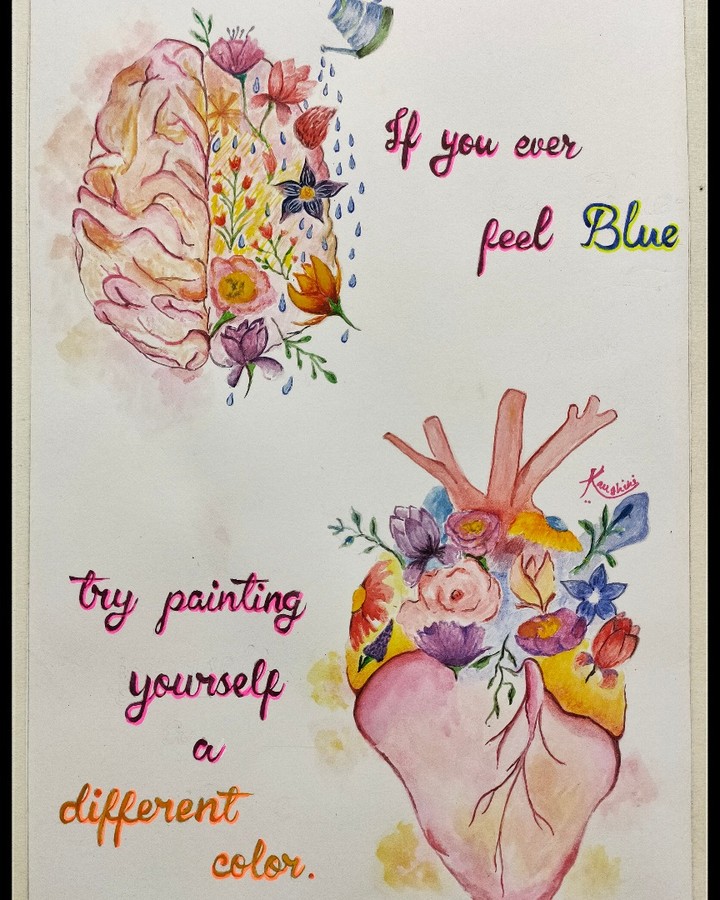 If you ever
feel Blue
Krushini
try painting
yourself
a
different
color.